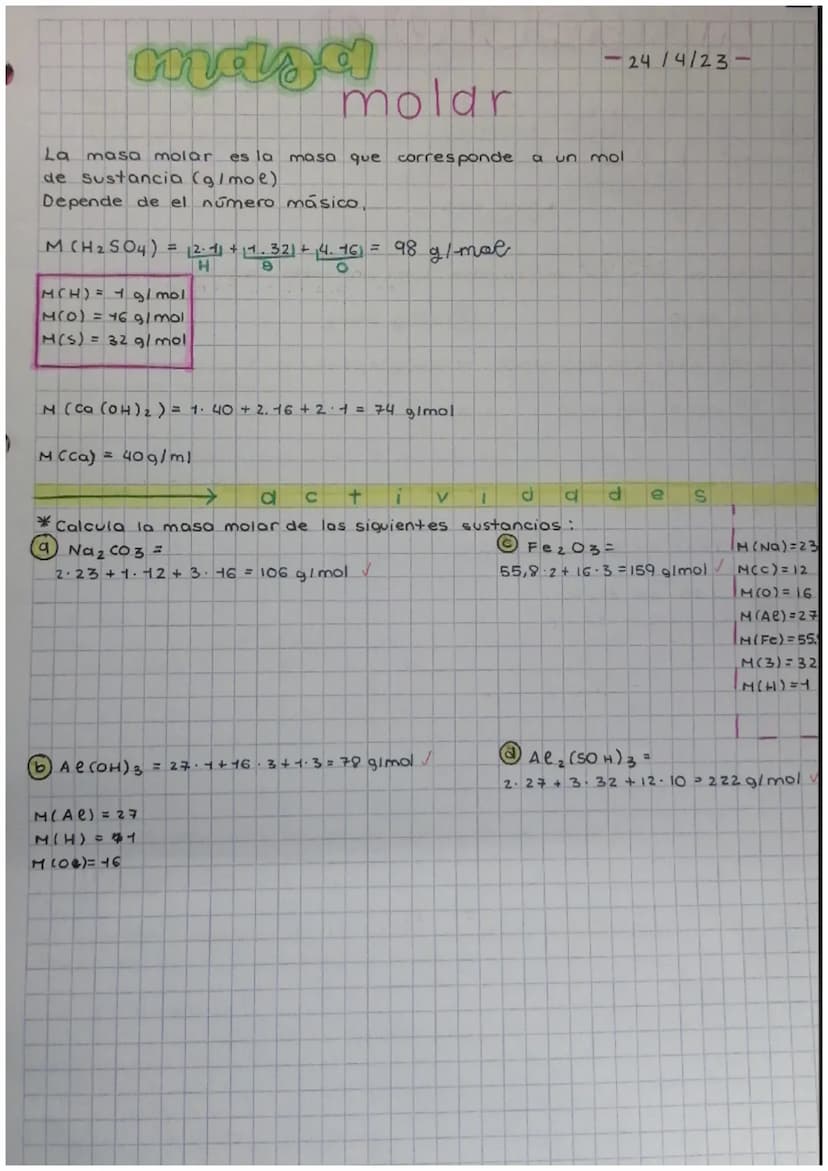 masa
molar
- 24/4/23 -
La masa molar es la masa que corresponde a un mol
de sustancia (g/mol)
Depende de el número másico.
M(H2SO4) = |2.1| + |1.32| + |4.16| = 98 g/mol
H S O
M(H) = 1 g/mol
M(O) = 16 g/mol
M(S) = 32 g/mol
M(Ca(OH)2) = 1. 40 + 2. 16 + 2 · 1 = 74 g/mol
M(Ca) = 40g/ml
actividades
* Calcula la masa molar de las siguientes sustancias:
a Na2CO3 =
2·23 + 1·12 + 3·16 = 106 g/mol ✓
c Fe2O3 =
55,8·2 + 16·3 = 159 g/mol ✓
M(Na)=23
M(C)=12
M(O)=16
M(Al)=27
M(Fe)=55,
M(3)=32
M(H)=1
b Al(OH)3 = 27·1 + 16·3 + 1·3 = 78 g/mol ✓
M(Al) = 27
M(H) = 1
M(O)= 16
d Al2(SOH)3 =
2·27 + 3·32 + 12·10 = 222 g/mol ✓